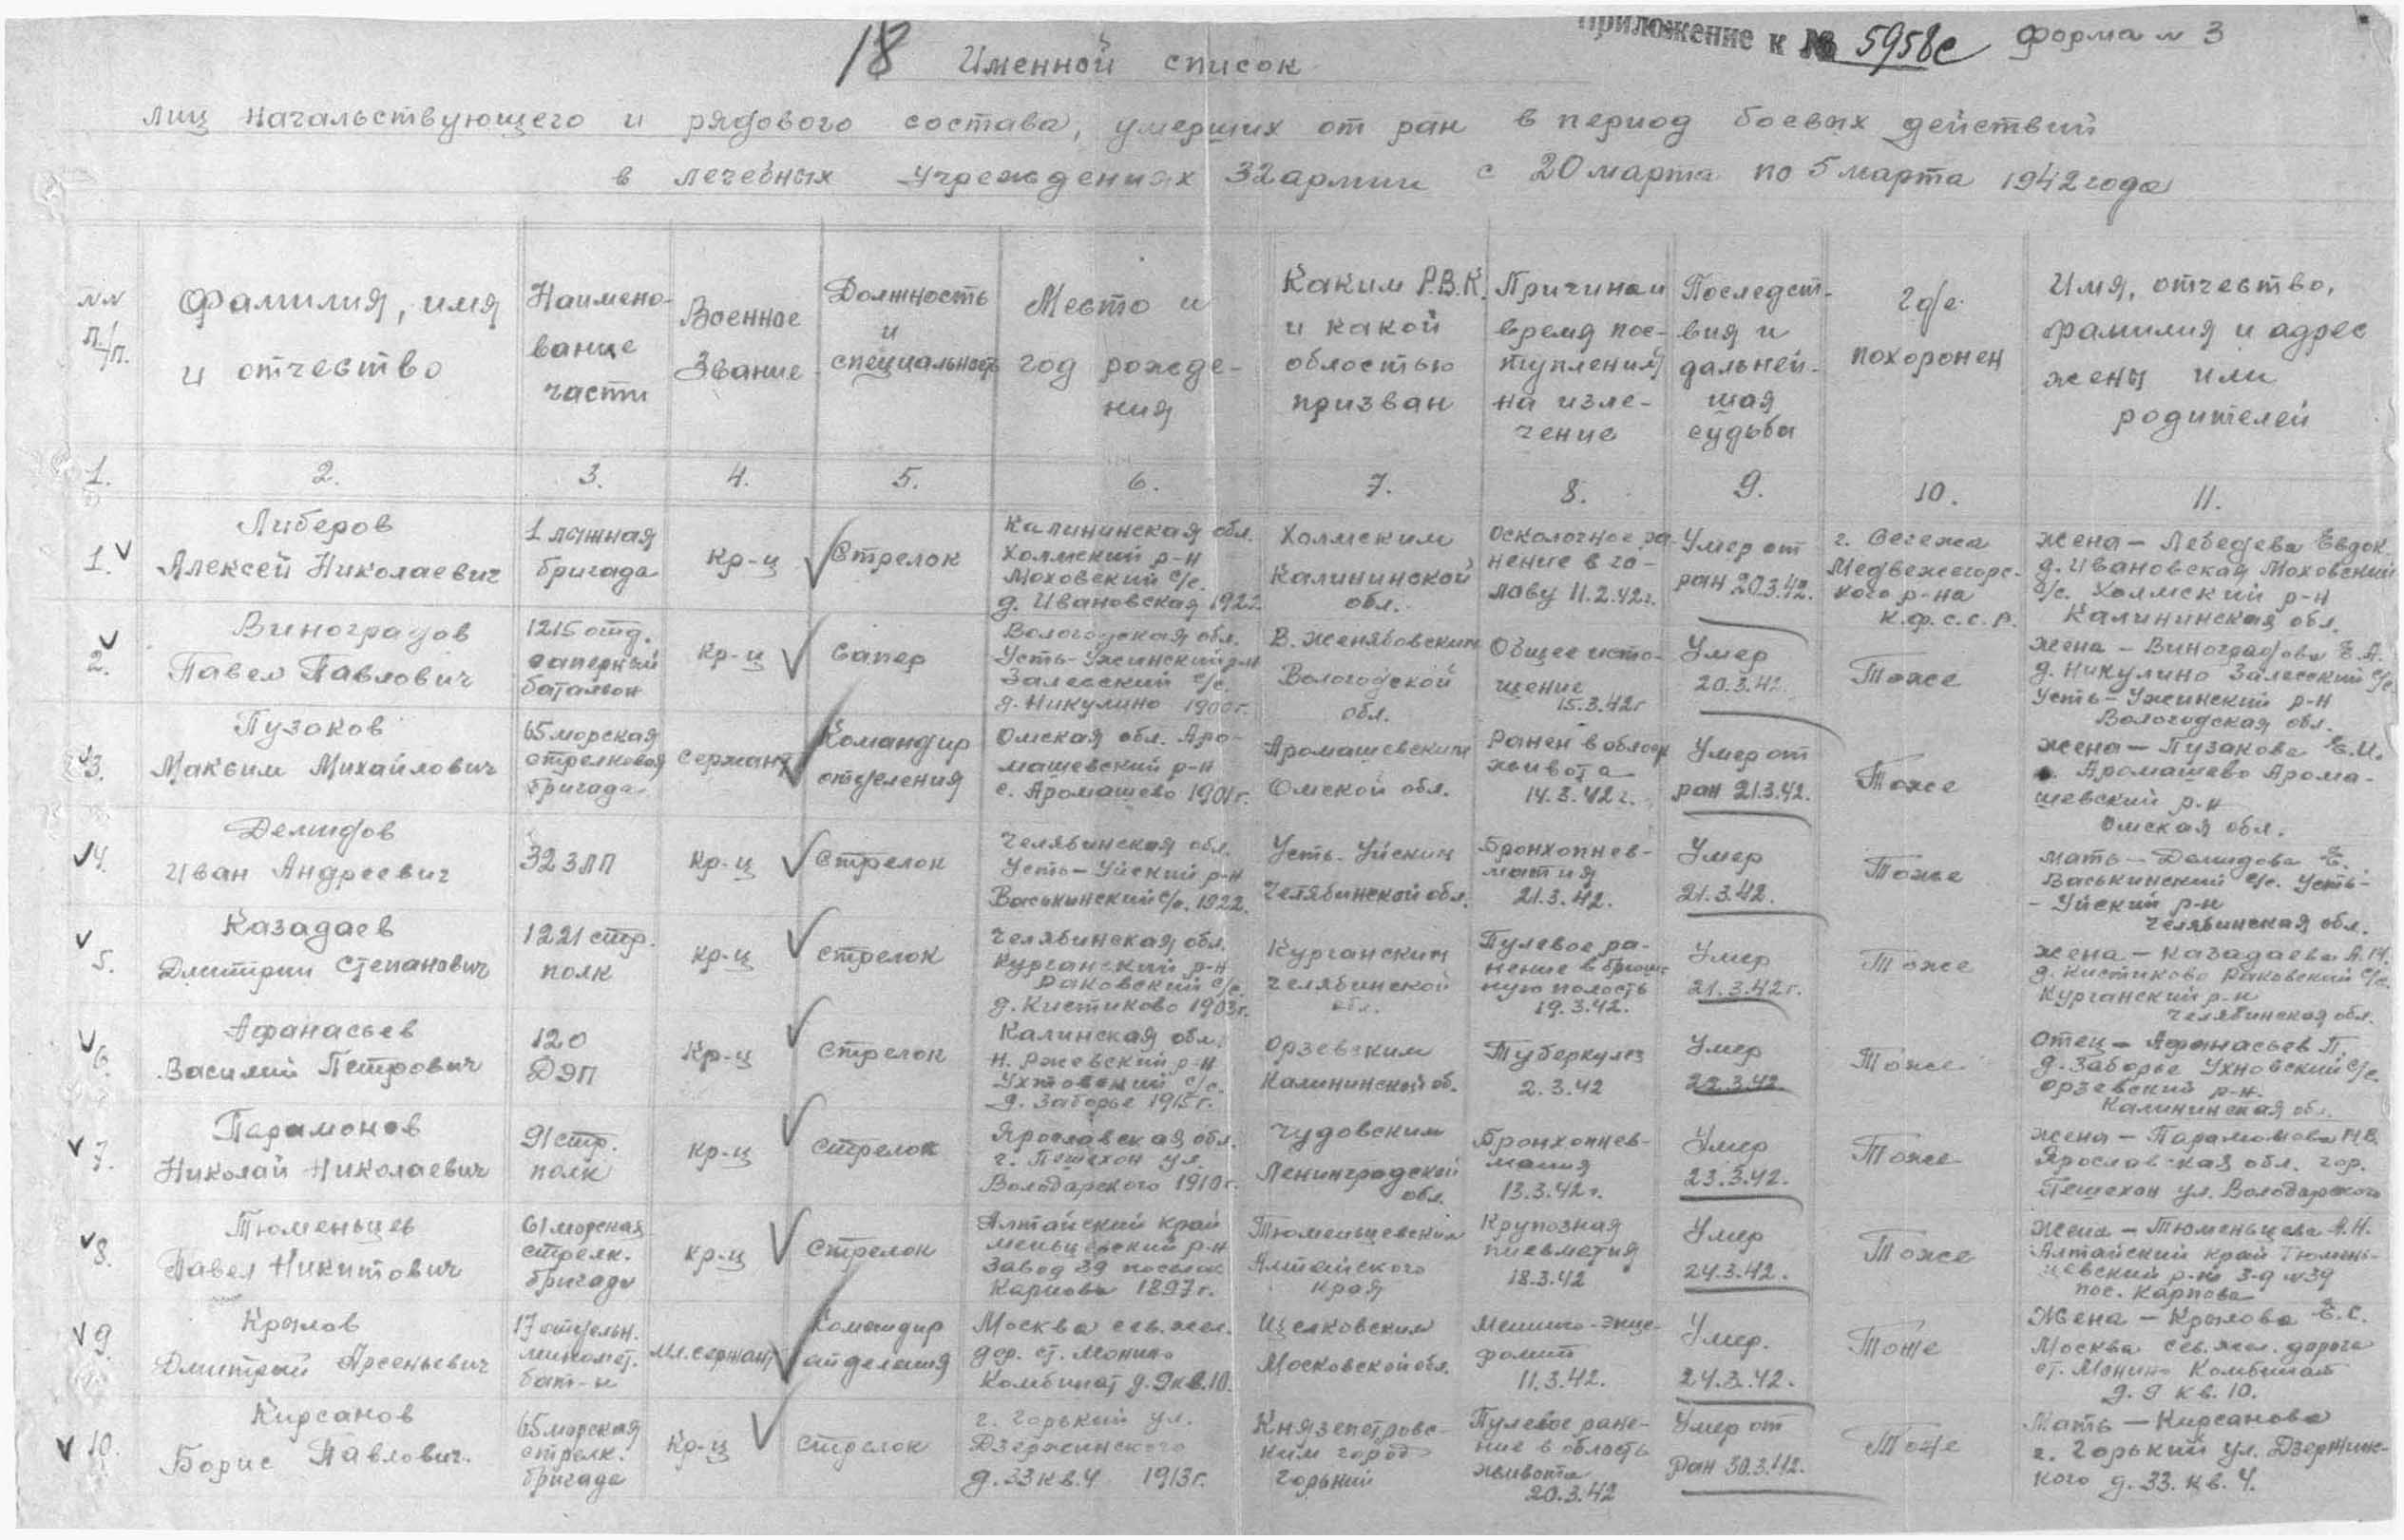 Приложение к № 5958с Форма № 3
18 Именной список
лиц начальствующего и рядового состава, умерших от ран в период боевых действий
в лечебных учреждениях 32 армии с 20 марта по 5 марта 1942 года
№№ п/п.
Фамилия, имя
и отчество
Наимено-
вание
части
Военное
Звание
Должность
и
специальность
Место и
год рожде-
ния
Каким Р.В.К.
и какой
областью
призван
Причина и
время пос-
тупления
на изле-
чение
Последст-
вия и
дальней-
шая
судьба
Где
похоронен
Имя, отчество,
фамилия и адрес
жены или
родителей
1. 2. 3. 4. 5. 6. 7. 8. 9. 10. 11.
1.
Либеров
Алексей Николаевич
1 лыжная
бригада
кр-ц
Стрелок
Калининская обл.
Холмский р-н
Моховский с/с.
д. Ивановская 1922
Холмским
Калининской
обл.
Осколочное ра-
нение в го-
лаву 11.2.42г.
Умер от
ран 20.3.42.
г. Сегежа
Медвежегорс-
кого р-на
К.Ф.С.С.Р.
жена – Лебедева Евдок.
д. Ивановская Моховский
с/с. Холмский р-н
Калининская обл.
2.
Виноградов
Павел Павлович
1215 отд.
саперный
батальон
кр-ц
Сапер
Вологодская обл.
Усть-Ужинский р-н
Залесский с/с.
д. Никулино 1900г.
В. Женябовским
Вологодской
обл.
Общее исто-
щение
15.3.42г
Умер
20.3.42.
Тоже
жена – Виноградова Е.А.
д. Никулино Залесский с/с
Усть-Ужинский р-н
Вологодская обл.
3.
Пузаков
Максим Михайлович
65 морская
стрелковая
бригада
Сержант
Командир
отделения
Омская обл. Аро-
машевский р-н
с. Аромашево 1901г.
Аромашевским
Омской обл.
Ранен в област
живота
14.3.42г.
Умер от
ран 21.3.42.
Тоже
жена – Пузакова Е.И.
Аромашево Арома-
шевский р-н
Омская обл.
4.
Демидов
Иван Андреевич
323ЛП
кр-ц
Стрелок
Челябинская обл.
Усть-Уйский р-н
Васькинский с/с. 1922.
Усть-Уйским
Челябинской обл.
Бронхопнев-
матия
21.3.42.
Умер
21.3.42.
Тоже
мать – Демидова Е.
Васькинский с/с. Усть-
- Уйский р-н
Челябинская обл.
5.
Казадаев
Дмитрий Степанович
1221 стр.
полк
кр-ц
стрелок
Челябинская обл.
Курганский р-н
Раковский с/с.
д. Кистиково 1903г.
Курганским
Челябинской
обл.
Пулевое ра-
нение в брюш-
ную полость
19.3.42.
Умер
21.3.42г.
Тоже
жена – Казадаева А.М.
д. Кистиково Раковский с/с.
Курганский р-н
Челябинская обл.
6.
Афанасьев
Василий Петрович
120
ДЭП
Кр-ц
стрелок
Калинская обл.
Н. Ржевский р-н
Ухтовский с/с.
д. Заборье 1915г.
Орзевским
Калининской об.
Туберкулез
2.3.42
Умер
22.3.42
Тоже
Отец – Афанасьев П.
д. Заборье Ухновский с/с.
Орзевский р-н.
Калининская об.
7.
Парамонов
Николай Николаевич
91 стр.
полк
кр-ц
стрелок
Ярославская обл.
г. Пошехон ул.
Володарского 1910г.
Чудовским
Ленинградской
обл.
Бронхопнев-
мания
13.3.42г.
Умер
23.3.42.
Тоже
жена – Парамонова М.В.
Ярославская обл. гор.
Пешехон ул. Володарского
8.
Тюменьцев
Павел Никитович
61 морская
стрелк.
бригада
кр-ц
стрелок
Алтайский край
меньцевский р-н
Завод 39 поселок
Карпова 1897г.
Тюменьцевским
Алтайского
края
Крупозная
пневметия
18.3.42
Умер
24.3.42.
Тоже
Жена – Тюменьцева А.Н.
Алтайский край Тюмень-
цевский р-н з-д №39
пос. Карпова
9.
Крылов
Дмитрий Арсеньевич
17 отдельн.
миномет.
бат-н
Мл. сержант
Командир
отделения
Москва сев. жел.
дор. ст. Монино
Комбинат д. 9 кв. 10.
Щелковским
Московской обл.
Менинго-энце-
фалит
11.3.42.
Умер.
24.3.42.
Тоже
Жена – Крылова Е.С.
Москва сев. жел. дорога
ст. Монино Комбинат
д. 9 кв. 10.
10.
Кирсанов
Борис Павлович.
65 морская
стрелк.
бригада
Кр-ц
стрелок
г. Горький ул.
Дзержинского
д. 33 кв. 4 1913г.
Князепетровс-
ким город
Горький
Пулевое ране-
ние в область
живота
20.3.42
Умер от
ран 30.3.42.
Тоже
Мать – Кирсанова
г. Горький ул. Дзержинс-
кого д. 33. кв. 4.